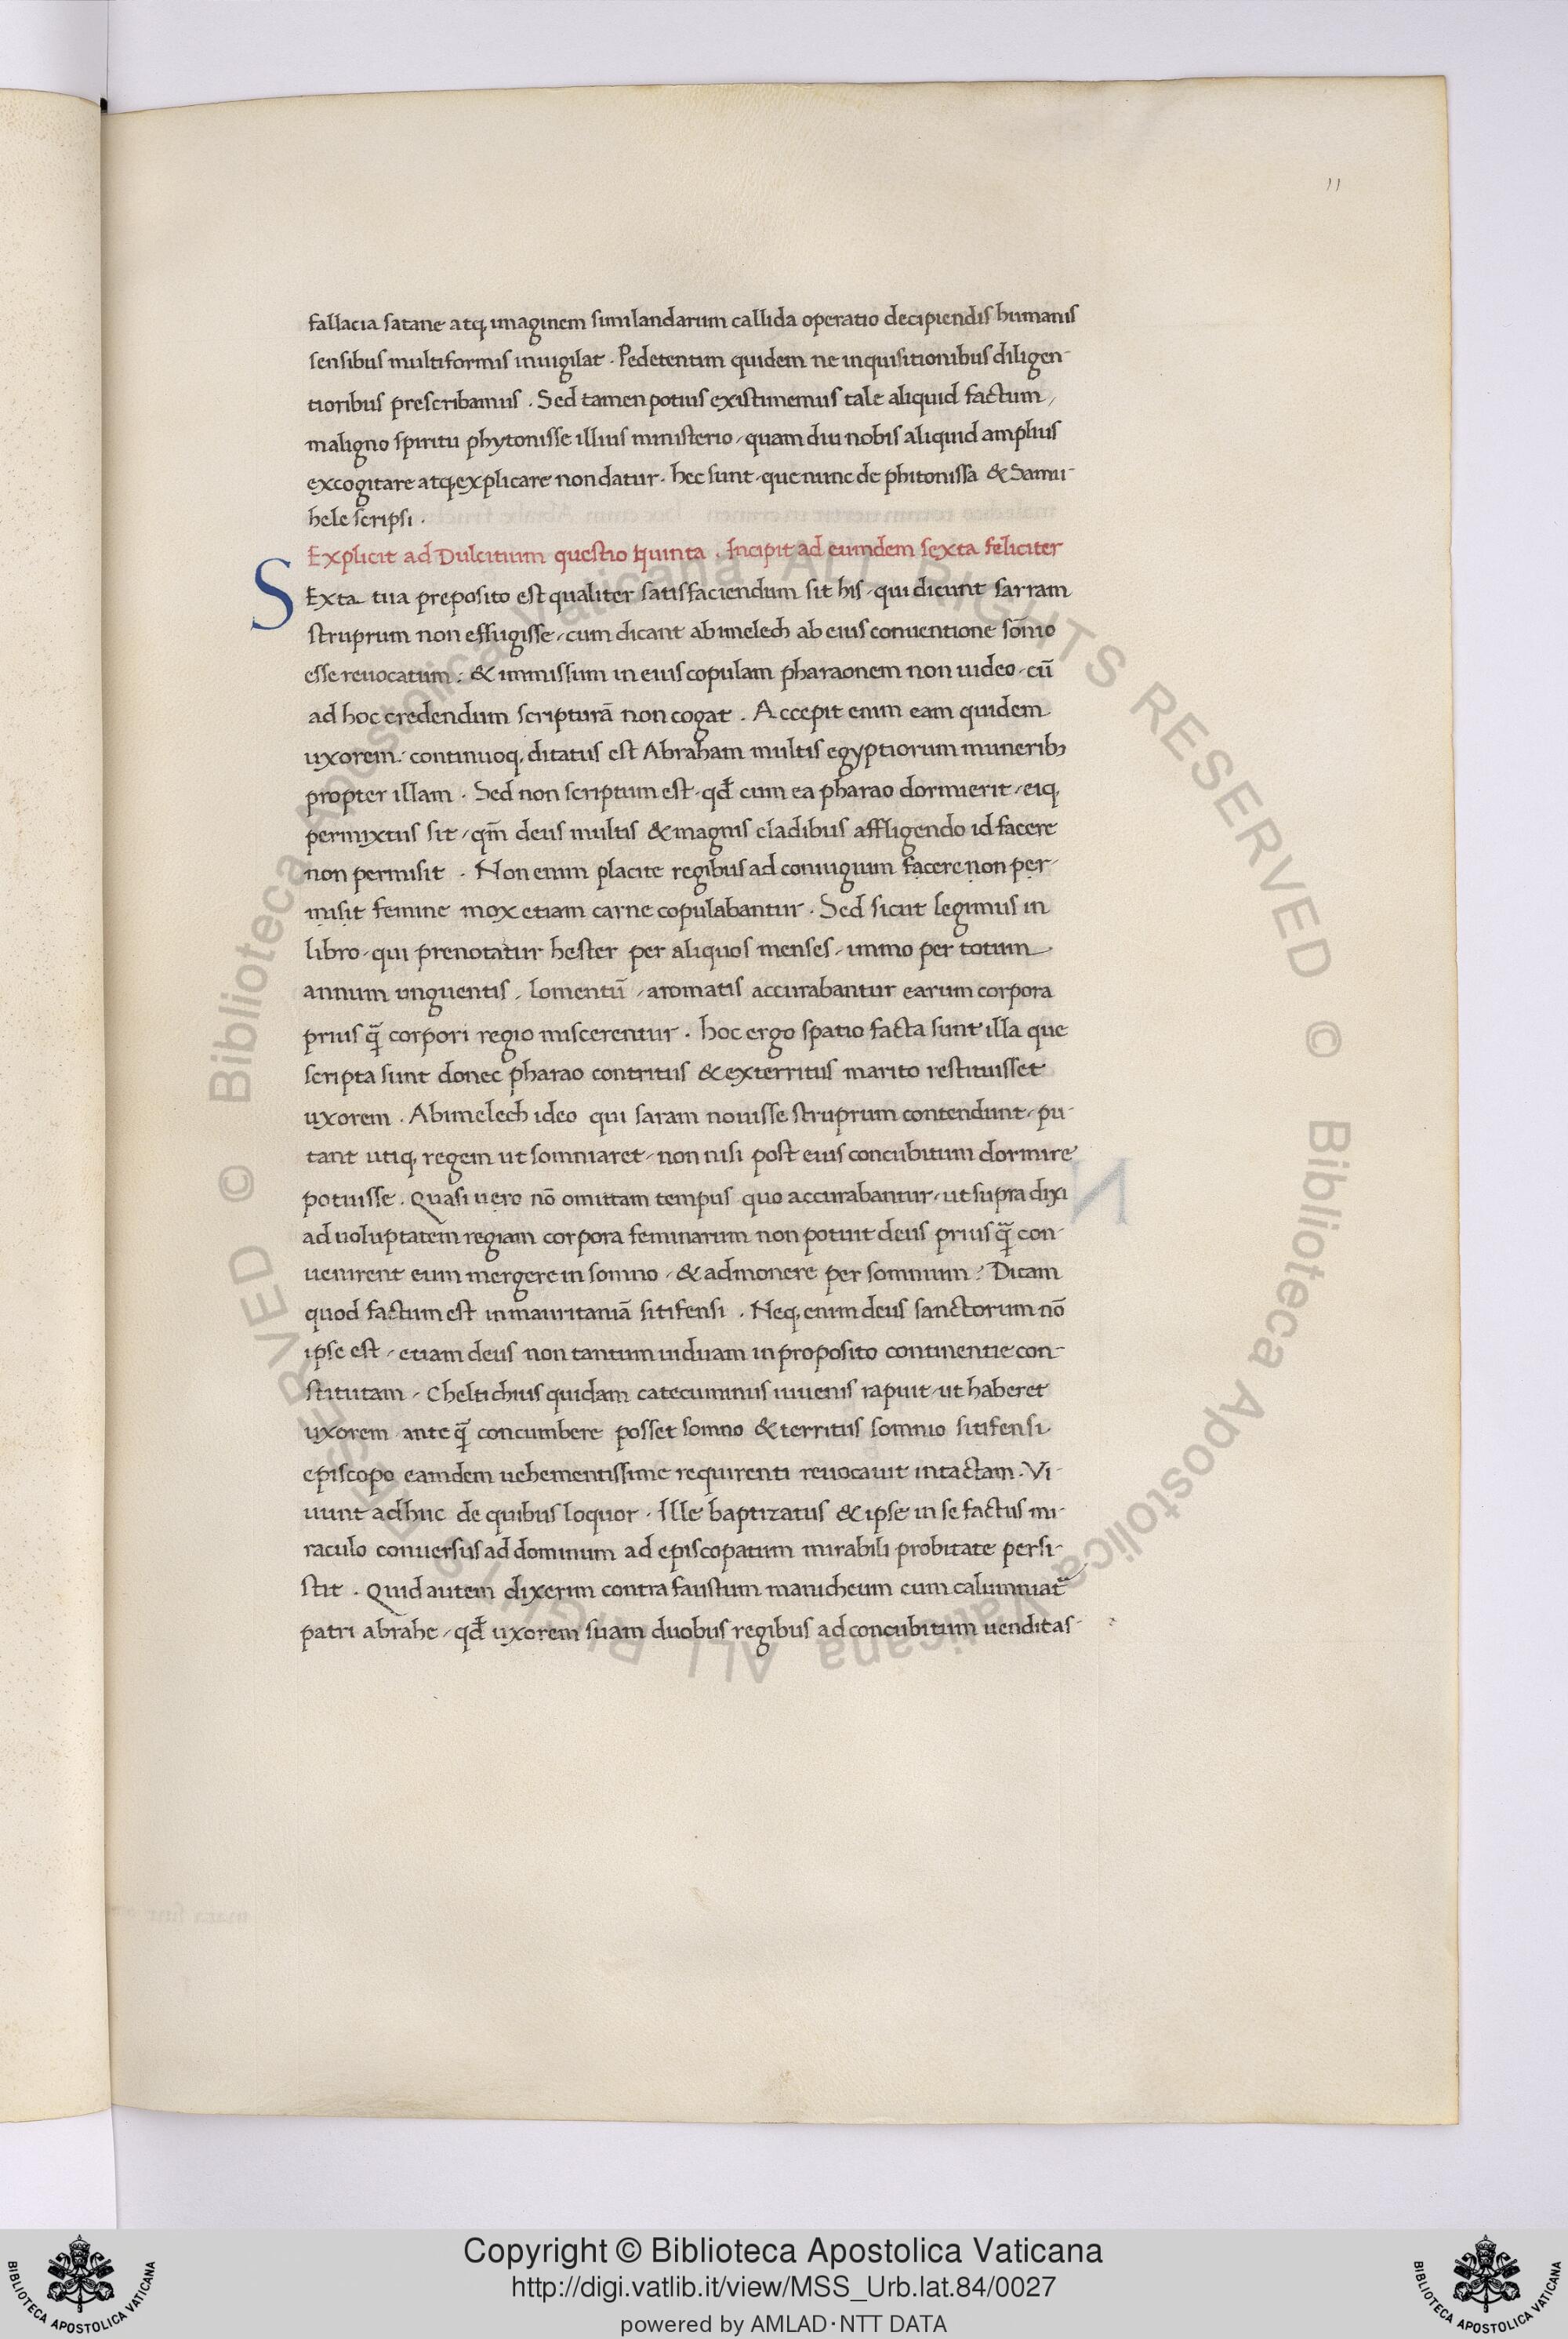 11
fallacia satane atq, imaginem similandarum callida operatio decipiendis humanis
sensibus multiformis inuigilat . Pedetentim quidem ne inquisitionibus diligen-
tioribus prescribamus . Sed tamen potius existimemus tale aliquid factum,
maligno spiritu phytonisse illius ministerio, quam diu nobis aliquid amplius
excogitare atq, explicare non datur. hec sunt, que nunc de phitonissa & Samu-
hele scripsi .
Explicit ad Dulcitium questio quinta . Incipit ad eumdem sexta feliciter
S
Exta tua preposito est qualiter satisfaciendum sit his, qui dicunt sarram
struprum non effugisse, cum dicant abimelech ab eius conuentione som̄o
esse reuocatum: & immissum in eius copulam pharaonem non uideo, cū
ad hoc credendum scripturā non cogat . Accepit enim eam quidem
uxorem: continuoq, ditatus est Abraham multis egyptiorum munerib;
propter illam . Sed non scriptum est, qd̄ cum ea pharao dormierit, eiq,
permixtus sit, qm̄ deus multis & magnis cladibus affligendo id facere
non permisit . Non enim placite regibus ad coniugium fạcerẹ nọn pẹr-
ṃiṣiṭ femine mox etiam carne copulabantur . Sed sicut legimus in
libro, qui prenotatur hester per aliquos menses, immo per totum
annum unguentis, lomentū, aromatis accurabantur earum corpora
prius q̄ corpori regio miscerentur . hoc ergo spatio facta sunt illa que
scripta sunt donec pharao contritus & exterritus marito restituisset
uxorem . Abimelech ideo qui saram nouisse struprum contendunt, pu-
tant utiq, regem ut somniaret, non nisi post eius concubitum dormire
potuisse . Quasi uero nō omittam tempus quo accurabantur, ut supra dixi
ad uoluptatem regiam corpora feminarum non potuit deus prius q̄ con-
uenirent eum mergere in somno, & admonere per somnum? Dicam
quod factum est in mauritaniā sitifensi . Neq, enim deus sanctorum nō
ipse est, etiam deus non tantum uiduam in proposito continentie con-
stitutam, Cheltichius quidam catecuminus iuuenis rapuit, ut haberet
uxorem ante q̄ concumbere posset somno & territus somnio sitifensi
episcopo eamdem uehementissime requirenti reuocauit intactam . Vi-
uunt adhuc de quibus loquor . Ille baptizatus & ipse in se factus mi-
raculo conuersus ad dominum ad episcopatum mirabili probitate persi-
stit . Quid autem dixerim contra faustum manicheum cum calumniat̄
patri abrahe, qd̄ uxorem suam duobus regibus ad concubitum uenditas-
Biblioteca Apostolica Vaticana ALL RIGHTS RESERVED ©
Biblioteca Apostolica Vaticana ALL RIGHTS RESERVED ©
Copyright © Biblioteca Apostolica Vaticana
http://digi.vatlib.it/view/MSS_Urb.lat.84/0027
powered by AMLAD·NTT DATA
BIBLIOTECA APOSTOLICA VATICANA
BIBLIOTECA APOSTOLICA VATICANA